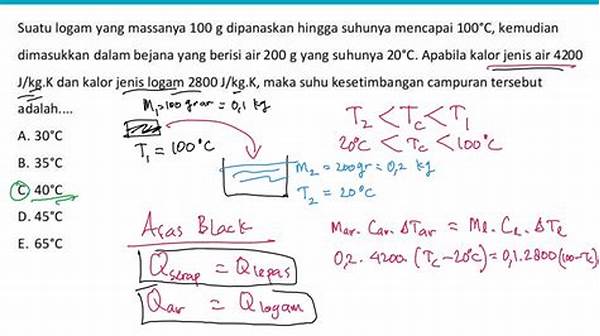 Suatu logam yang massanya 100 g dipanaskan hingga suhunya mencapai 100°C, kemudian
dimasukkan dalam bejana yang berisi air 200 g yang suhunya 20°C. Apabila kalor jenis air 4200
J/kg.K dan kalor jenis logam 2800 J/kg.K, maka suhu kesetimbangan campuran tersebut
adalah....
M₁=100 gram = 0,1 kg
T₁ = 100°C
T₂ < Tc < T₁
20°C < Tc < 100°C
A. 30°C
B. 35°C
C. 40°C
D. 45°C
E. 65°C
M₂ = 200gr = 0,2 kg
T₂ = 20°C
Asas Black
Qserap = Qlepas
Qair = Qlogam
Mair. Cair. ΔTair = Ml. Cl. ΔTl
0,2. 4200. (Tc-20°C) = 0,1.2800(100-Tc)